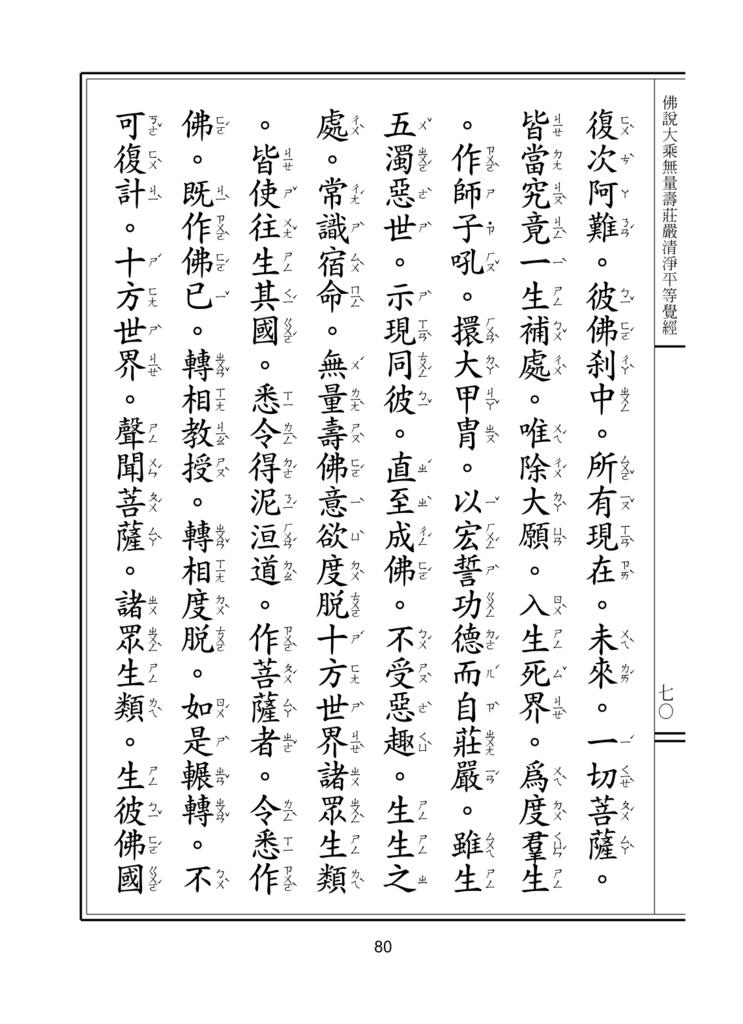 佛說大乘無量壽莊嚴清淨平等覺經
七〇
復次阿難。彼佛剎中。所有現在。未來。一切菩薩。
皆當究竟一生補處。唯除大願。入生死界。爲度羣生
。作師子吼。擐大甲冑。以宏誓功德而自莊嚴。雖生
五濁惡世。示現同彼。直至成佛。不受惡趣。生生之
處。常識宿命。無量壽佛意欲度脫十方世界諸眾生類
。皆使往生其國。悉令得泥洹道。作菩薩者。令悉作
佛。既作佛已。轉相教授。轉相度脫。如是輾轉。不
可復計。十方世界。聲聞菩薩。諸眾生類。生彼佛國
80